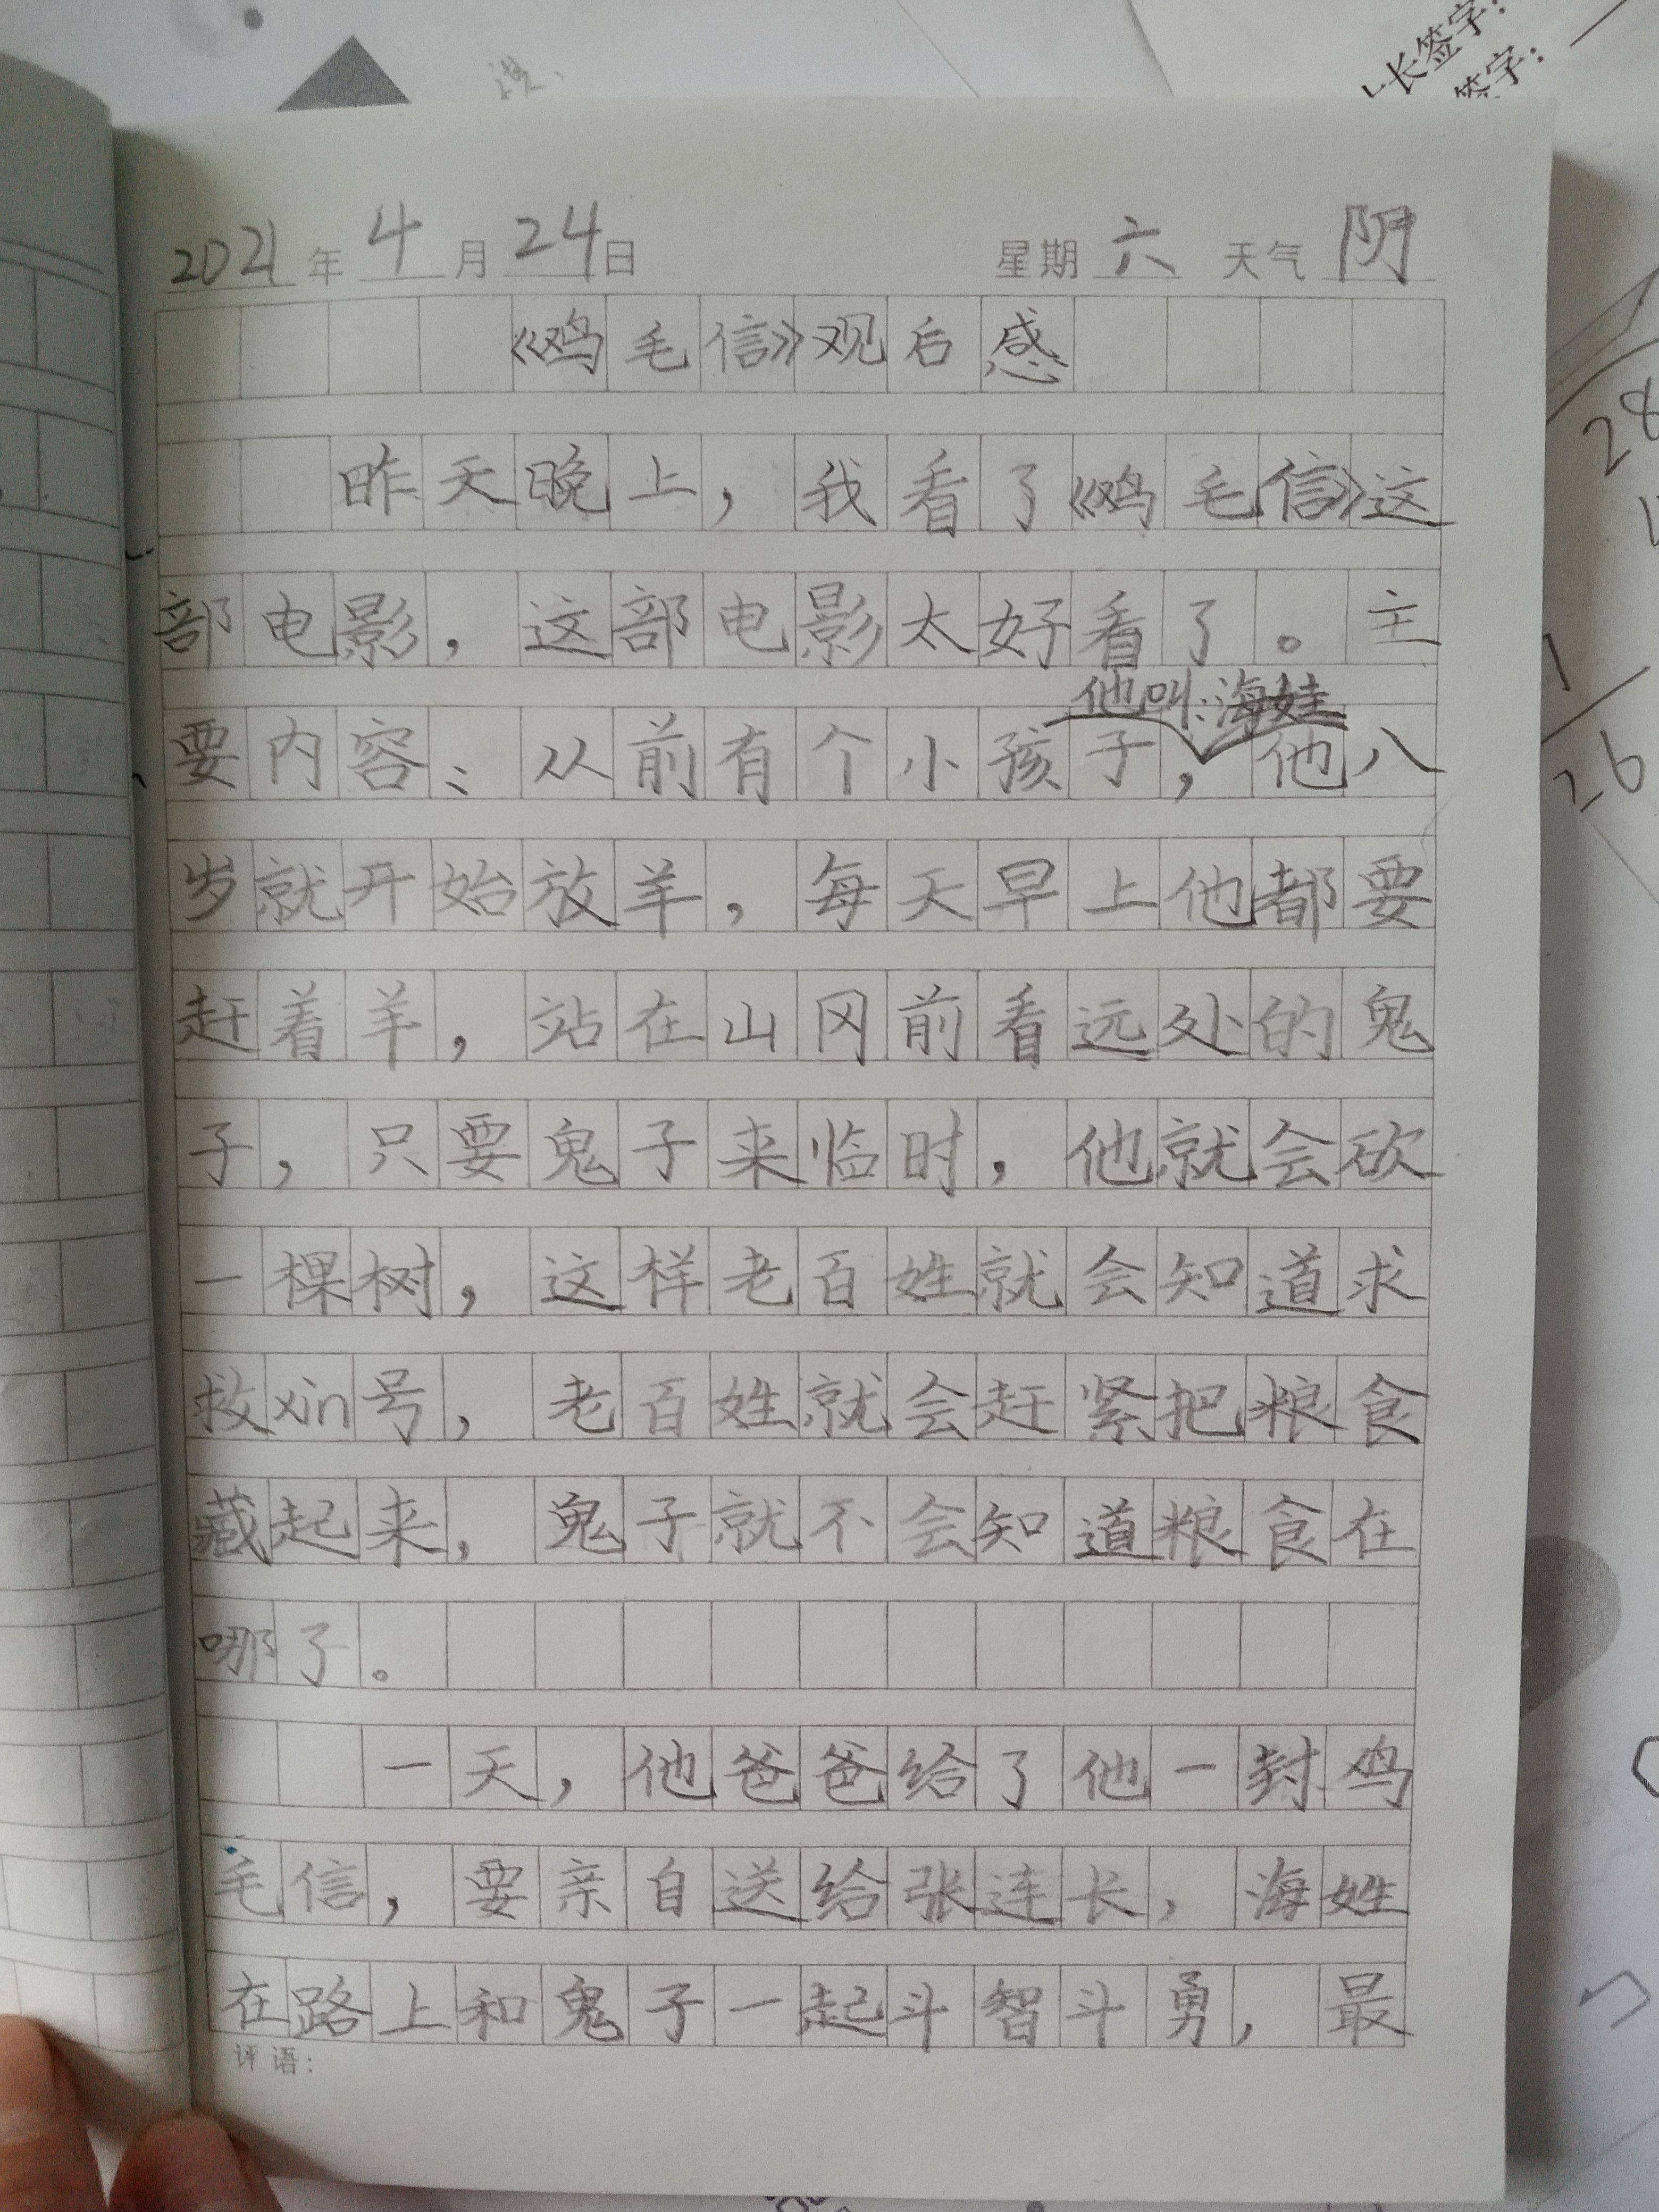 长签字:
签字:
2021年4月24日 星期六 天气阴
《鸡毛信》观后感
昨天晚上，我看了《鸡毛信》这
部电影，这部电影太好看了。主
他叫:海娃
要内容:从前有个小孩子，他八
岁就开始放羊，每天早上他都要
赶着羊，站在山冈前看远处的鬼
子，只要鬼子来临时，他就会砍
一棵树，这样老百姓就会知道求
救xin号，老百姓就会赶紧把粮食
藏起来，鬼子就不会知道粮食在
哪了。
一天，他爸爸给了他一封鸡
毛信，要亲自送给张连长，海姓
在路上和鬼子一起斗智斗勇，最
评语:
28
1
26